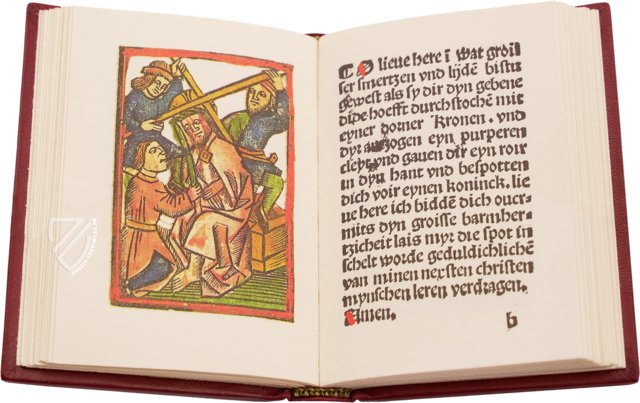 O lieue here ī wat groiſ
ſer ſmertzen vnd lijdē biſtu
geweſt als ſy dir dyn gebene
dide hoefft durchſtochē mit
eyner dorner Kronen. vnd
dyr auʒogen eyn purperen
cleyt vnd gauen dir eyn roir
in dyn hant vnd beſpotten
dich voir eynen koninck. lie
ue here ich biddē dich ouer
mits dyn groiſſe barmher
tzicheit lais myr die ſpot in
ſchelt worde geduldichlichē
van minen nexſten chriſten
mynſchen leren verdragen.
Amen.
b